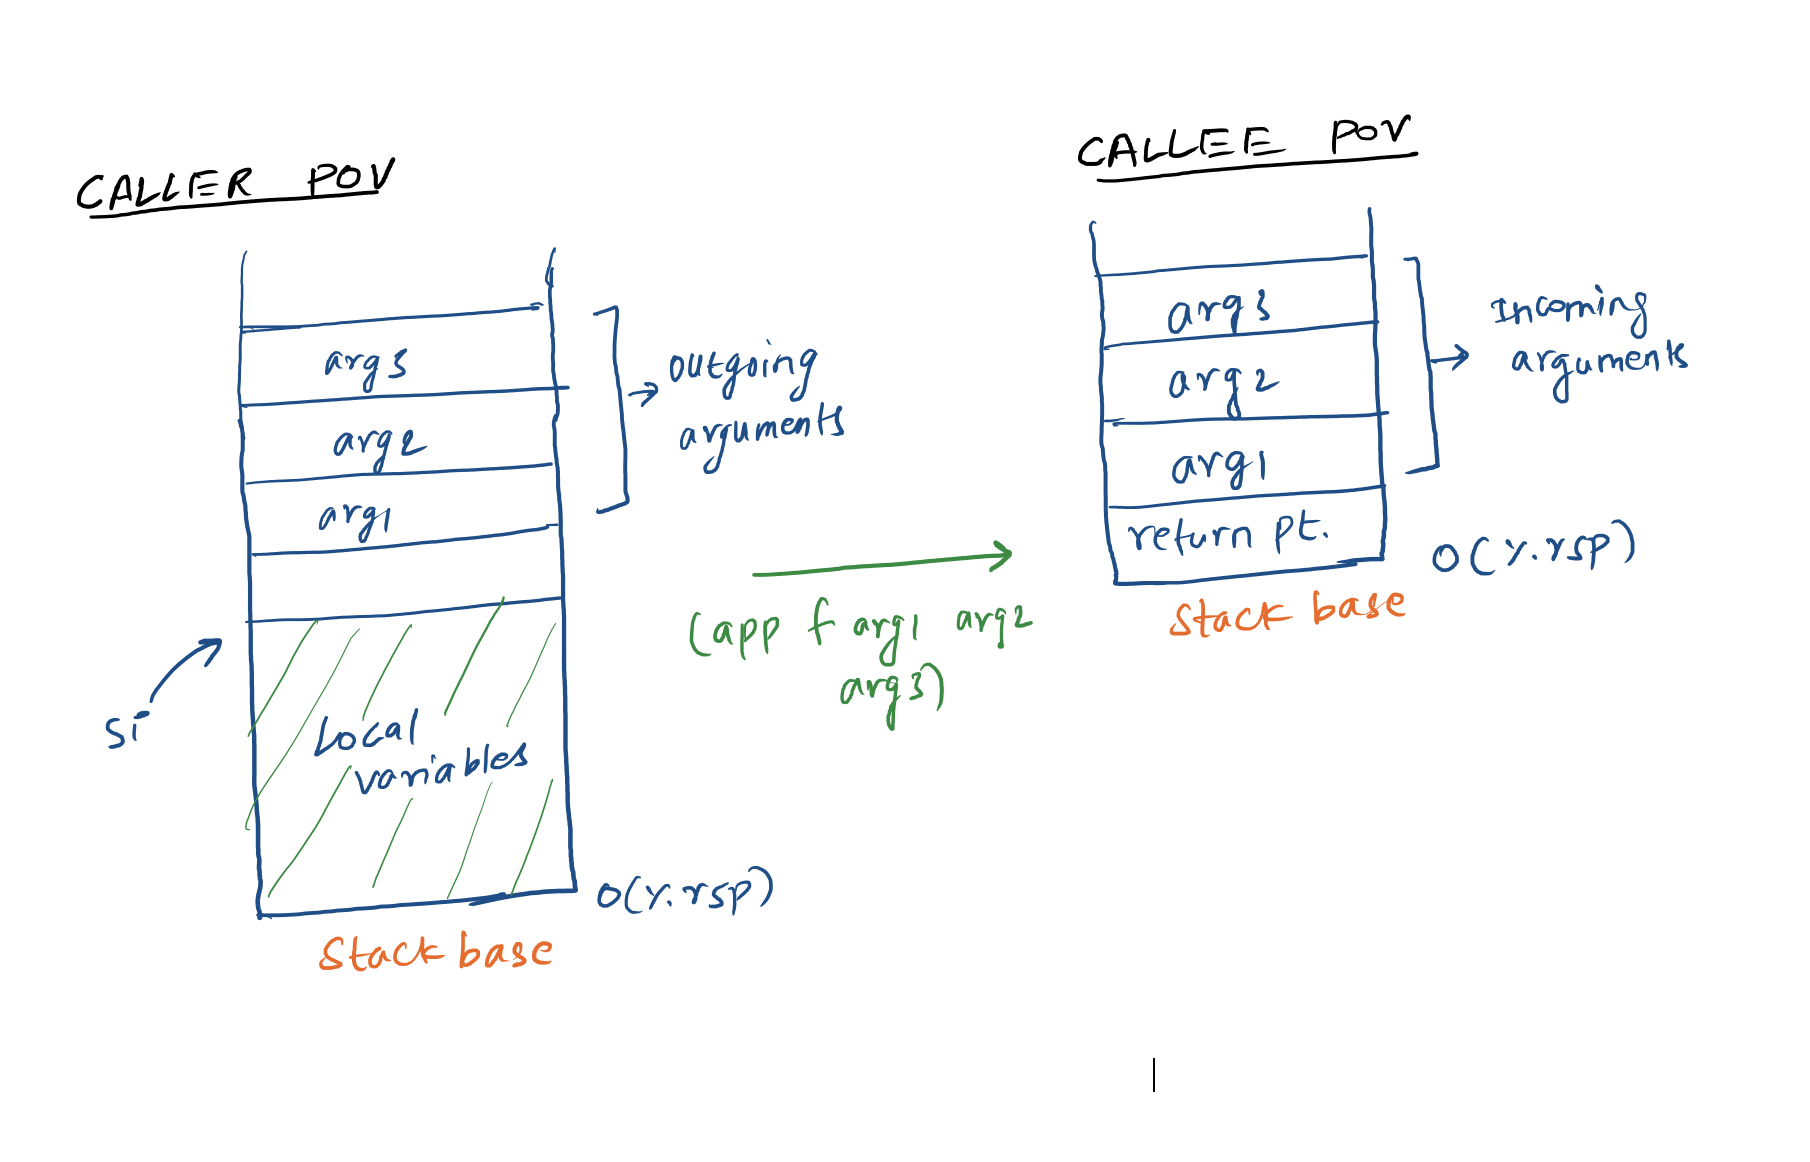 CALLER POV
arg3
arg2
arg1
outgoing
arguments
si
Local
variables
0(%.rsp)
Stack base
(app f arg1 arg2
arg3)
CALLEE POV
arg3
arg2
arg1
return pt.
Incoming
arguments
0(%.rsp)
Stack base